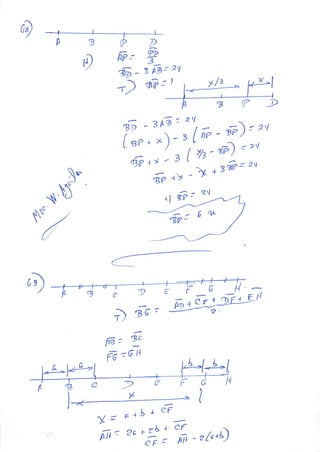 68)
A B P D
H) AP = PD/3
BD - 3AB = 24
T) BP = ?
x/3 x
A B P D
BD - 3AB = 24
(BP + x) - 3(AP - BP) = 24
BP + x - 3(x/3 - BP) = 24
BP + x - x + 3BP = 24
4 BP = 24
BP = 6
69)
A B C D E F G H
T) BG = AD + CF + DF + EH
AB = BC
FG = GH
a a b b
A B C D E F G H
x
x = a + b + CF
AH = 2a + 2b + CF
CF = AH - 2(a+b)